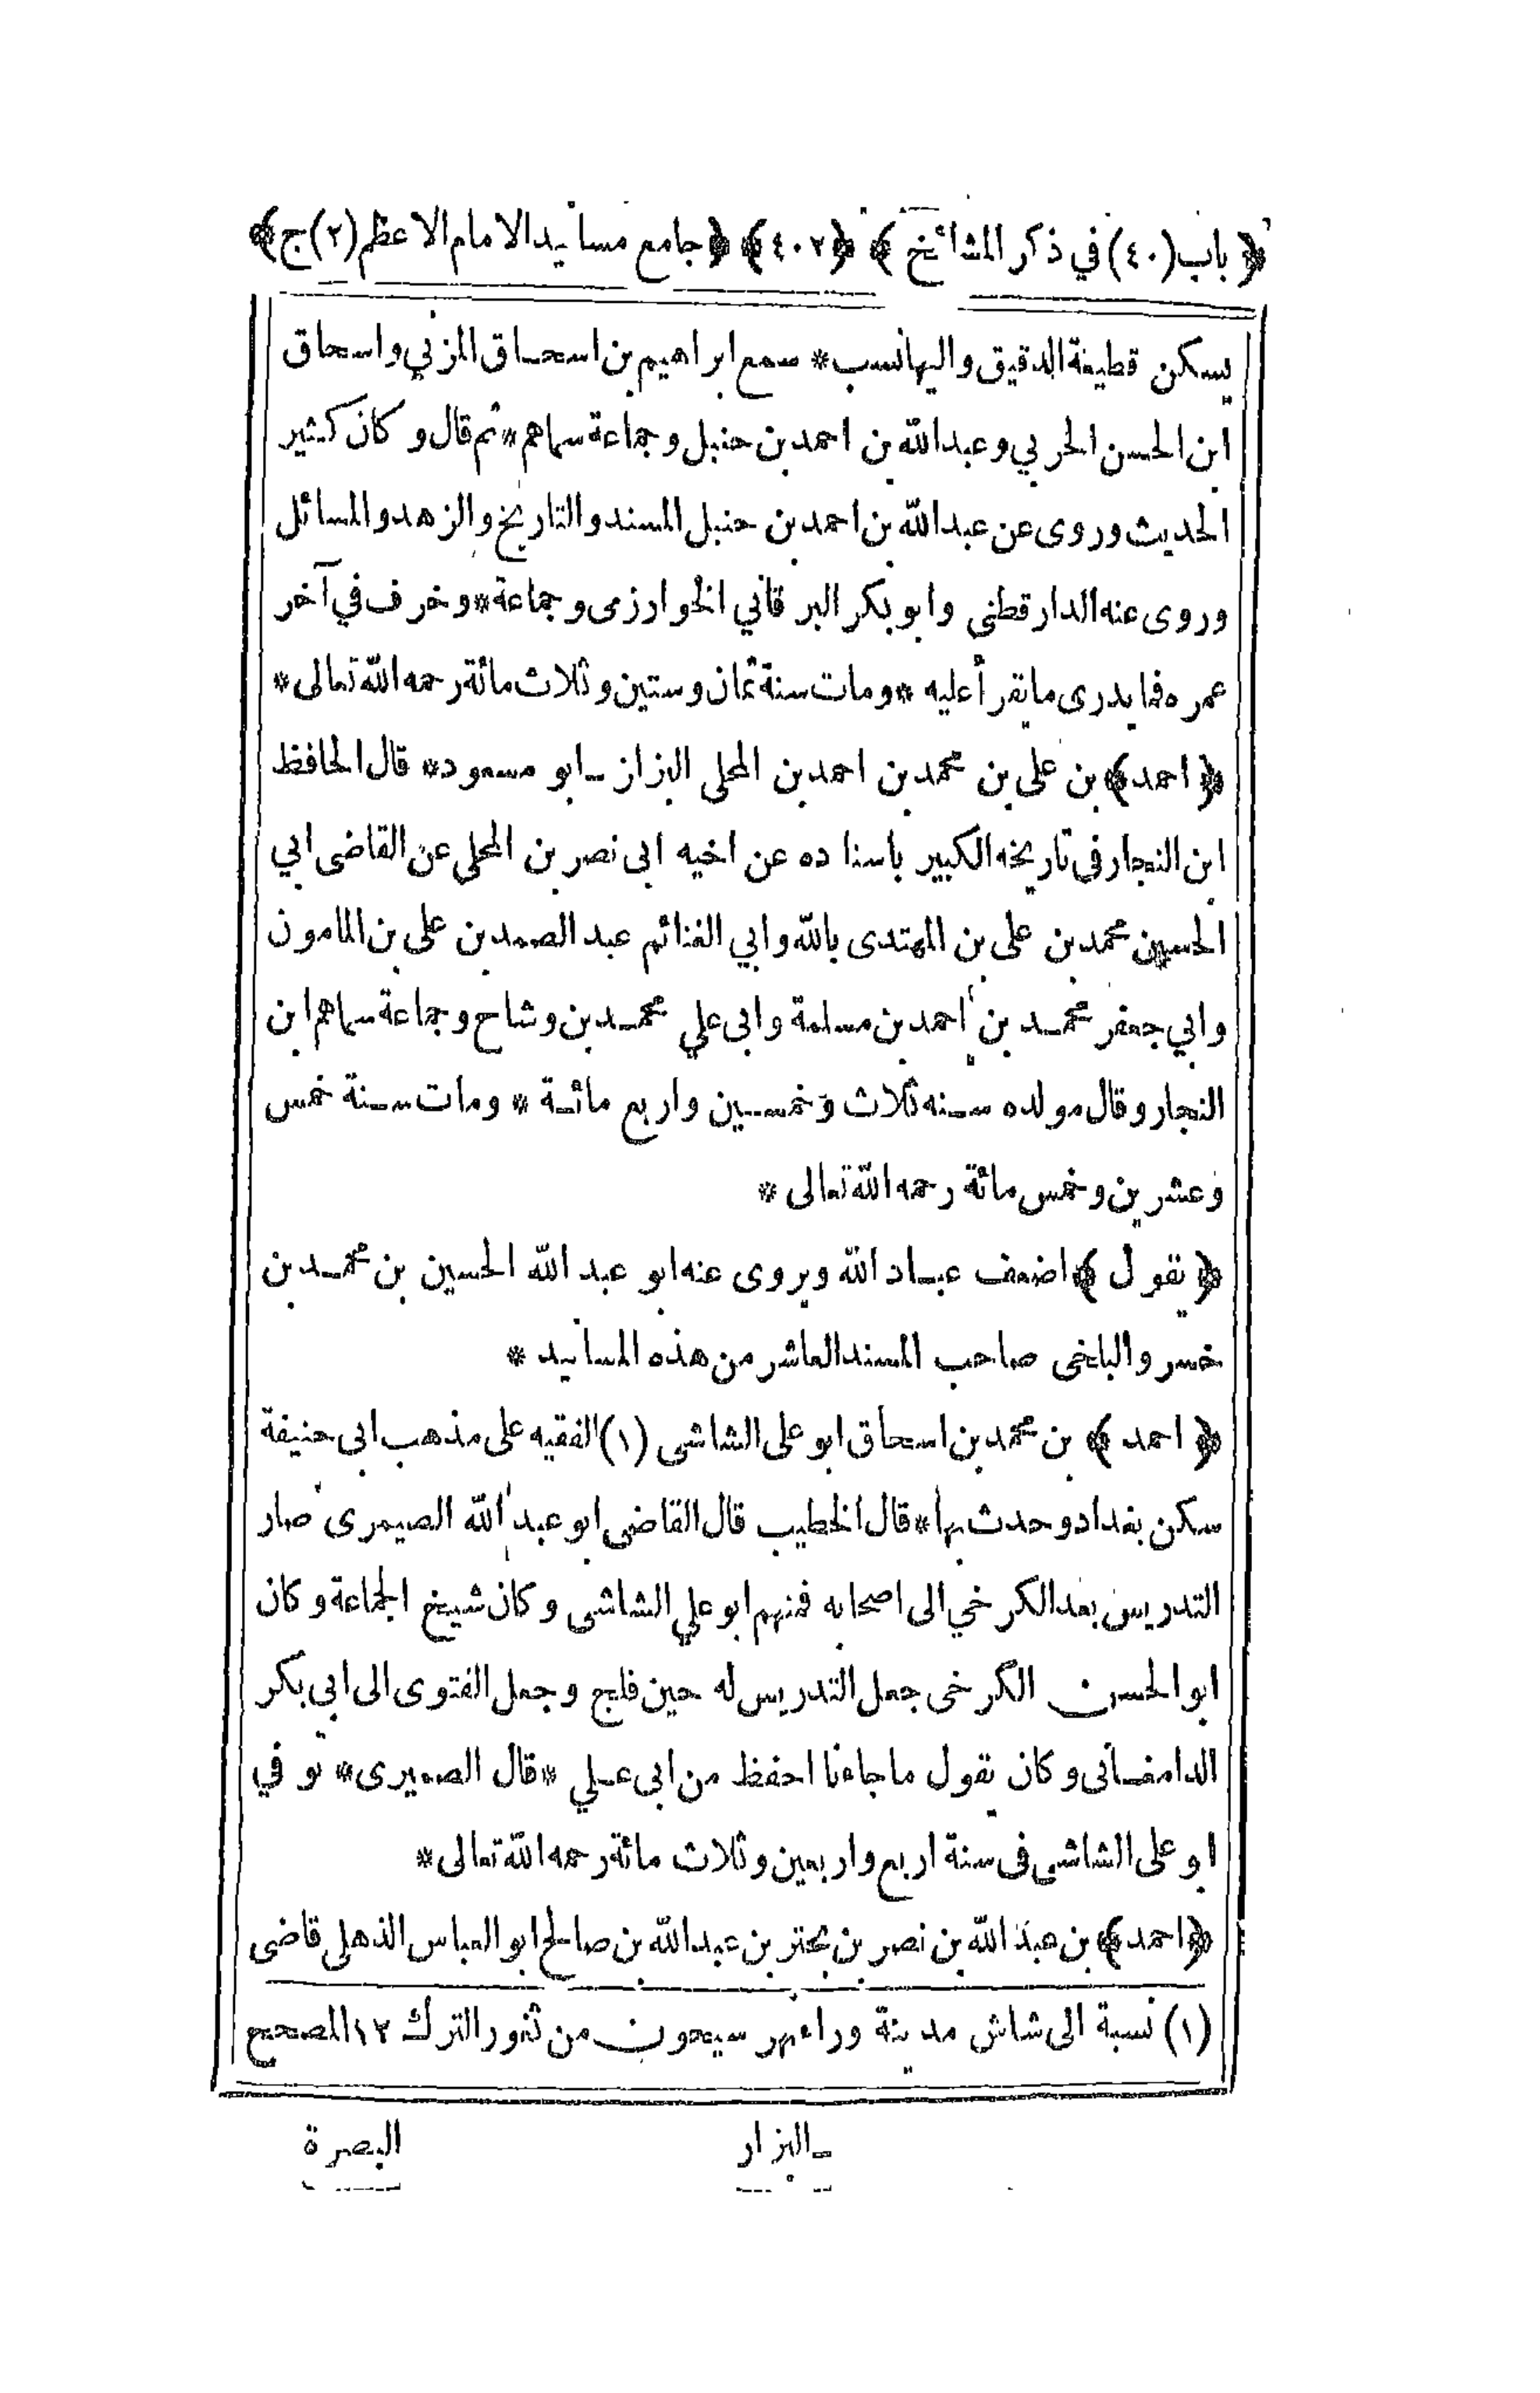 ﴿ باب (٤٠) في ذكر المشائخ ﴾ ﴿٤٠٢﴾ ﴿جامع مسانيد الامام الاعظم (٢) ج﴾
يسكن قطيعة الدقيق واليها نسب* سمع ابراهيم بن اسحاق المزني واسحاق
ابن الحسن الحربي وعبد الله بن احمد بن حنبل وجماعة سماهم* ثم قال وكان كثير
الحديث وروى عن عبد الله بن احمد بن حنبل المسند والتاريخ والزهد والمسائل
وروى عنه الدارقطنى وابو بكر البرقاني الخوارزمى وجماعة* وخرف في آخر
عمره فما يدرى ما يقرأ عليه* ومات سنة ثمان وستين وثلاث مائة رحمه الله تعالى*
﴿احمد﴾ بن على بن محمد بن احمد بن المحلى البزاز ـ ابو مسعود* قال الحافظ
ابن النجار فى تاريخه الكبير باسناده عن اخيه ابى نصر بن المحلى عن القاضى ابي
الحسين محمد بن على بن المهتدى بالله وابي الغنائم عبد الصمد بن على بن المامون
وابي جعفر محمد بن احمد بن مسلمة وابى علي محمد بن وشاح وجماعة سماهم ابن
النجار وقال مولده سنه ثلاث وخمسين واربع مائة* ومات سنة خمس
وعشرين وخمس مائة رحمه الله تعالى*
﴿يقول﴾ اضعف عباد الله ويروى عنه ابو عبد الله الحسين بن محمد بن
خسرو البلخى صاحب المسند العاشر من هذه المسانيد*
﴿احمد﴾ بن محمد بن اسحاق ابو على الشاشى (١) الفقيه على مذهب ابى حنيفة
سكن بغداد وحدث بها* قال الخطيب قال القاضى ابو عبد الله الصيمرى صار
التدريس بعد الكرخي الى اصحابه فمنهم ابو علي الشاشى وكان شيخ الجماعة وكان
ابو الحسن الكرخى جعل التدريس له حين فلج وجعل الفتوى الى ابي بكر
الدامغانى وكان يقول ما جاءنا احفظ من ابى علي* قال الصميرى* توفي
ابو على الشاشى فى سنة اربع واربعين وثلاث مائة رحمه الله تعالى*
﴿احمد﴾ بن عبد الله بن نصر بن بحتر بن عبد الله بن صالح ابو العباس الذهلى قاضى
(١) نسبة الى شاش مدينة وراء نهر سيحون من ثغور الترك ١٢ المصحح
ـ البزار البصرة